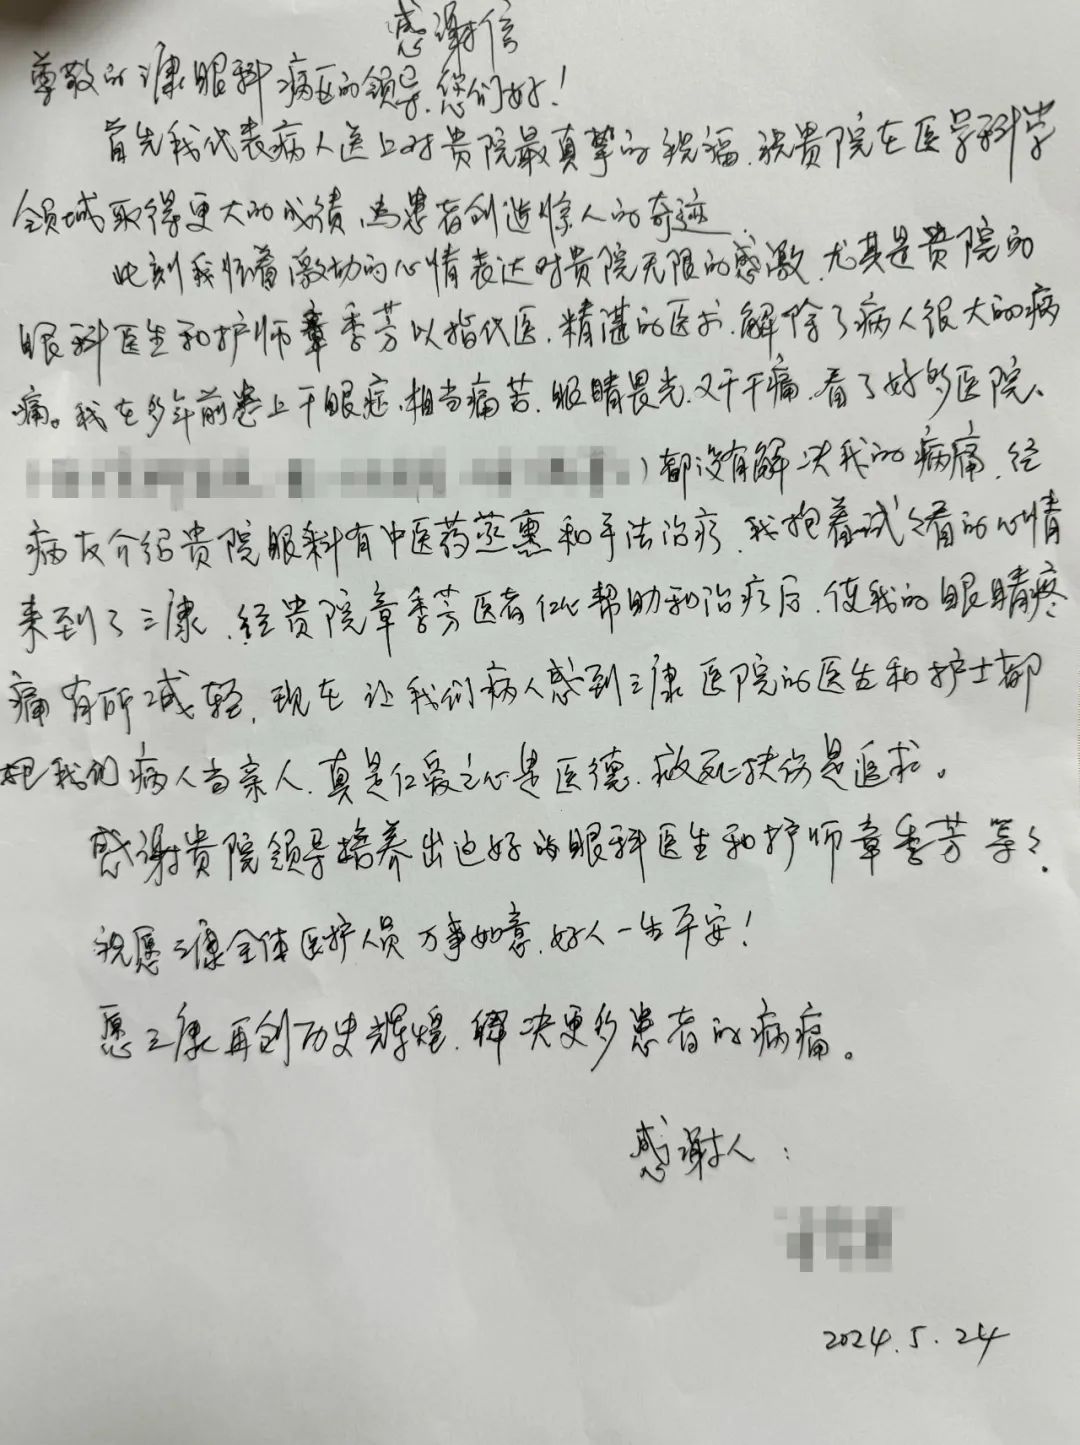 感谢信
尊敬的三康眼科病区的领导,您们好!
首先我代表病人送上对贵院最真挚的祝福,祝贵院在医学科学
领域取得更大的成绩,为患者创造惊人的奇迹.
此刻我怀着激动的心情表达对贵院无限的感激,尤其是贵院的
眼科医生和护师章季芳以指代医,精湛的医术,解除了病人很大的病
痛。我在多年前患上干眼症,相当痛苦,眼睛畏光,又干干痛,看了好多医院、
)都没有解决我的病痛,经
病友介绍贵院眼科有中医药蒸熏和手法治疗,我抱着试试看的心情
来到了三康,经贵院章季芳医者仁心帮助和治疗后,使我的眼睛疼
痛有所减轻,现在让我们病人感到三康医院的医生和护士都
把我们病人当亲人,真是仁爱之心是医德,救死扶伤是追求。
感谢贵院领导培养出这好的眼科医生和护师章季芳等等.
祝愿三康全体医护人员万事如意,好人一生平安!
愿三康再创历史辉煌,解决更多患者的病痛。
感谢人:
2024.5.24